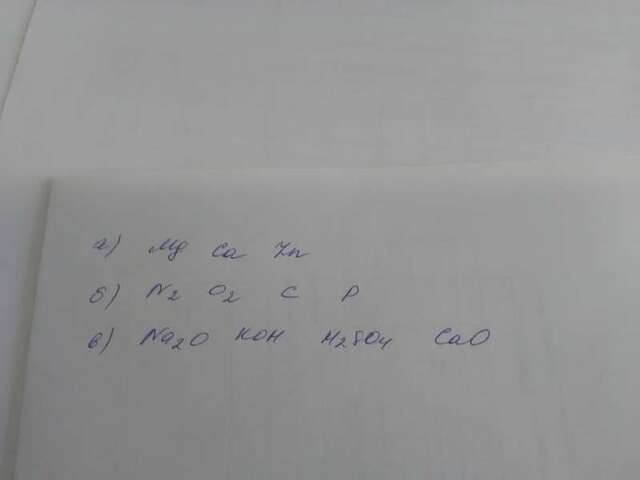 а) Mg Ca Zn
б) N2 O2 C P
в) Na2O KOH H2SO4 CaO